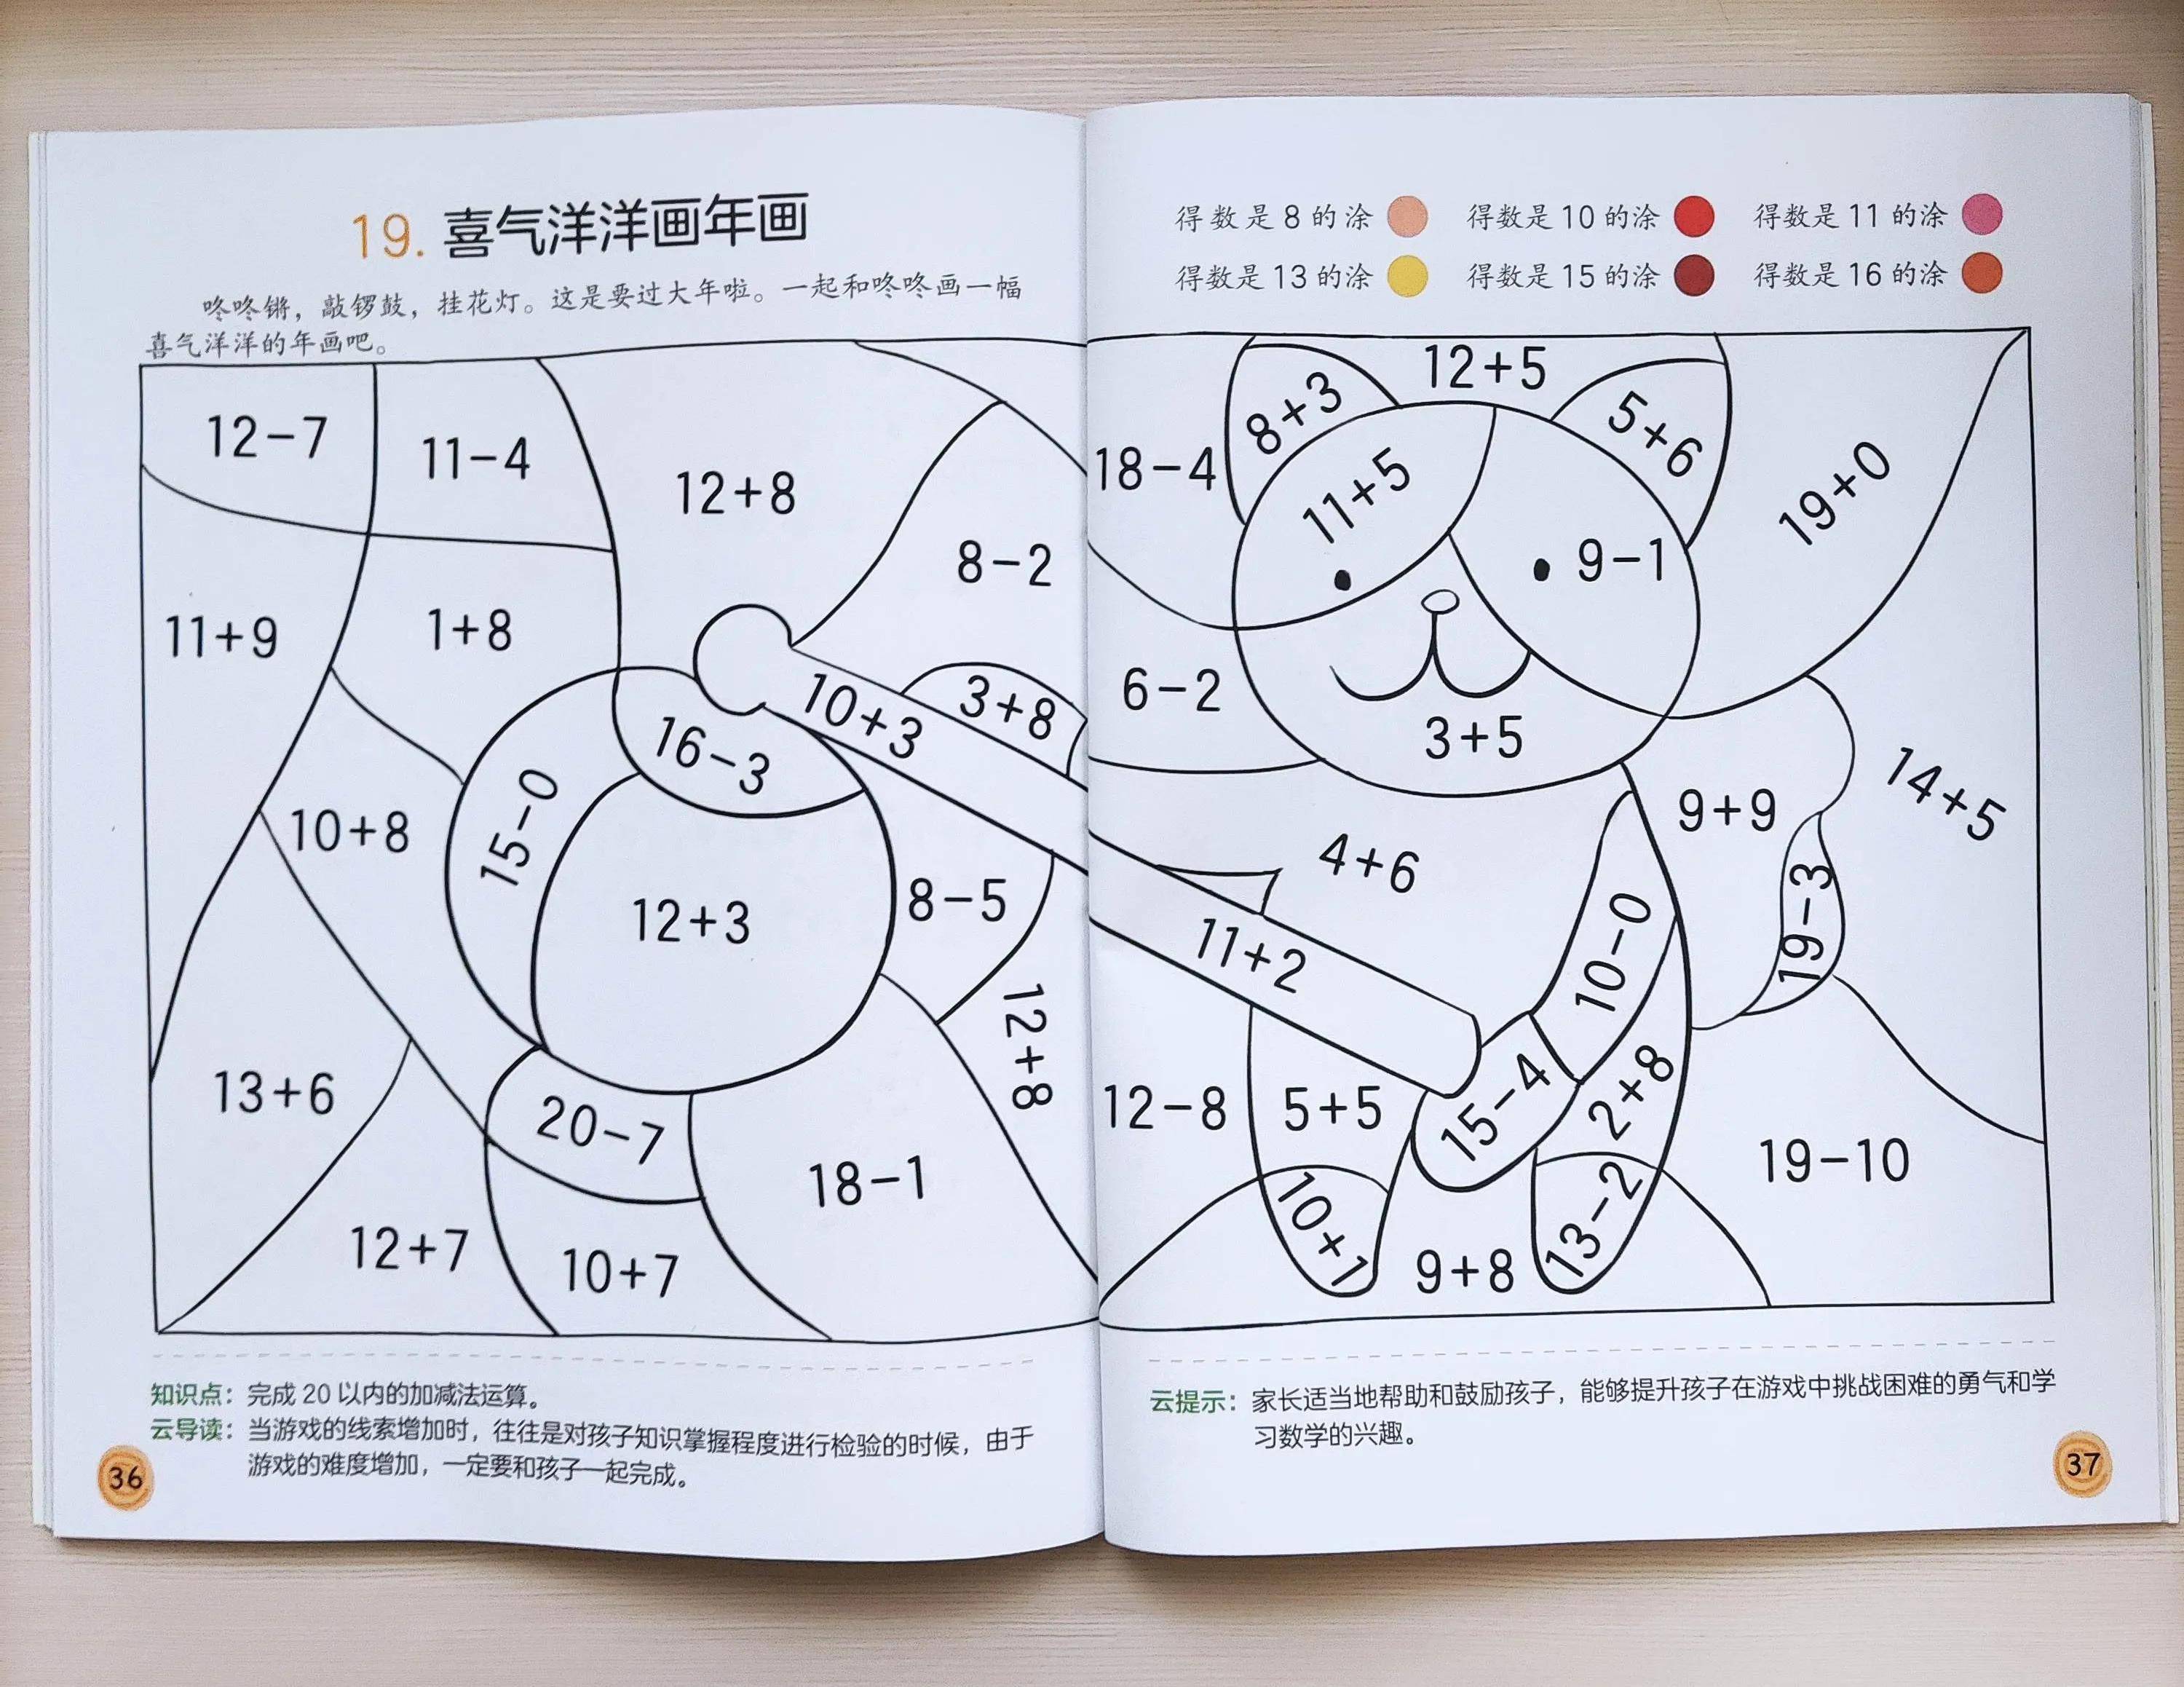 19. 喜气洋洋画年画
咚咚锵，敲锣鼓，挂花灯。这是要过大年啦。一起和咚咚画一幅
喜气洋洋的年画吧。
12-7
11-4
12+8
8-2
11+9
1+8
10+3
3+8
16-3
10+8
15-0
12+3
8-5
12+8
13+6
20-7
18-1
12+7
10+7
知识点：完成 20 以内的加减法运算。
云导读：当游戏的线索增加时，往往是对孩子知识掌握程度进行检验的时候，由于
游戏的难度增加，一定要和孩子一起完成。
36
得数是 8 的涂
得数是 10 的涂
得数是 11 的涂
得数是 13 的涂
得数是 15 的涂
得数是 16 的涂
12+5
8+3
5+6
18-4
11+5
9-1
19+0
6-2
3+5
9+9
14+5
4+6
10-0
19-3
11+2
12-8
5+5
15-4
2+8
19-10
10+1
9+8
13-2
云提示：家长适当地帮助和鼓励孩子，能够提升孩子在游戏中挑战困难的勇气和学
习数学的兴趣。
37